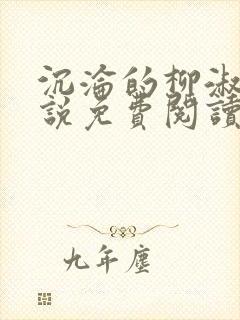 沉淪的柳淑
說免費閱讀
九年塵